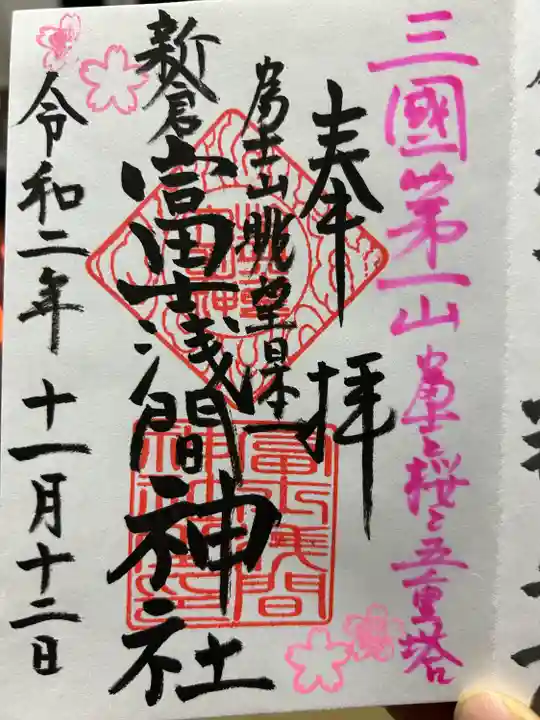 三國第一山
富士と桜と五重塔
奉拝
富士山眺望日本一
新倉
富士浅間神社
令和二年十一月十二日